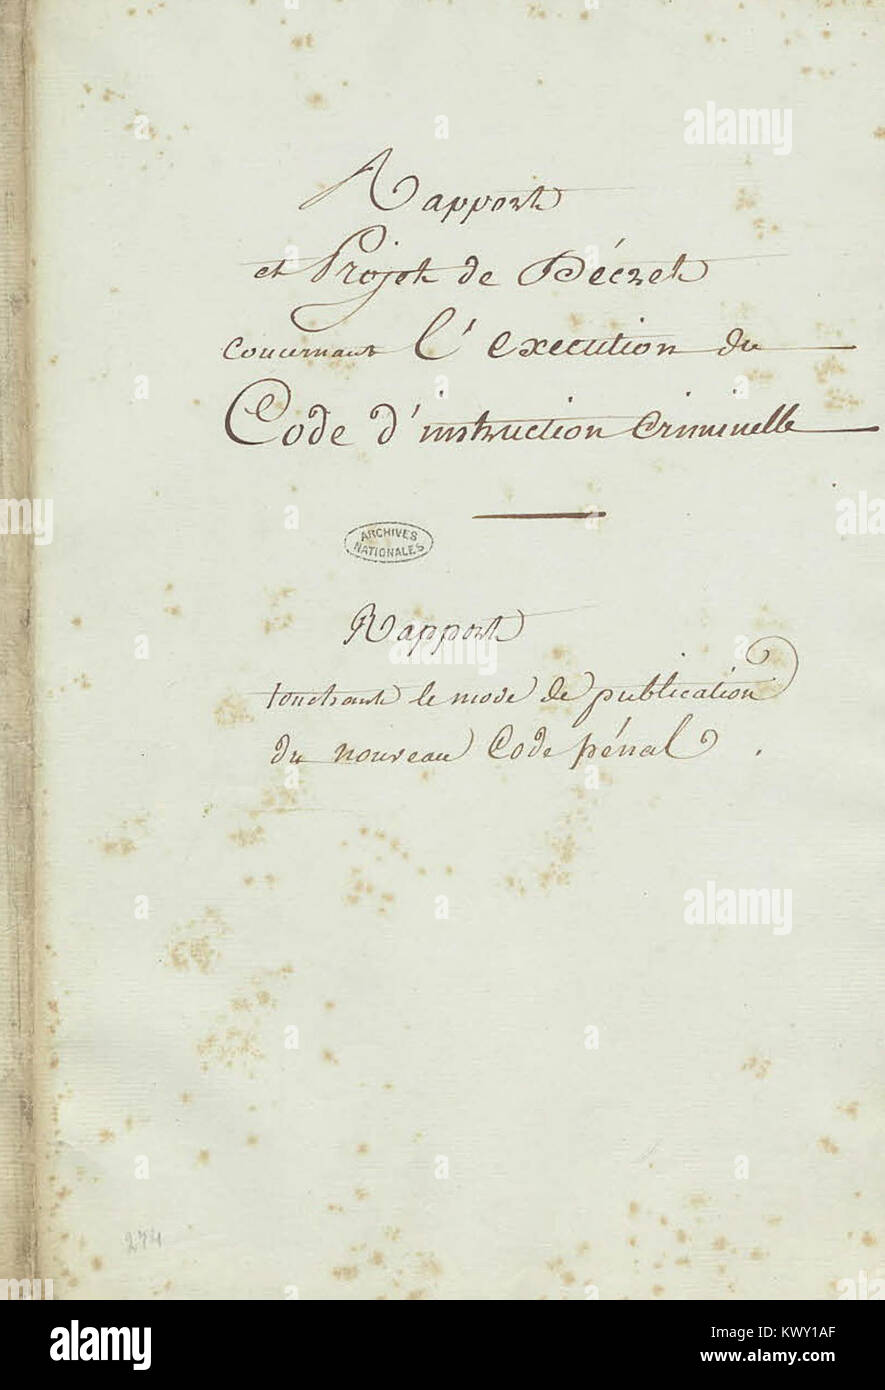 Rapport
et Projet de Décret
concernant l'execution du
Code d'instruction Criminelle
ARCHIVES
NATIONALES
Rapport
touchant le mode de publication
du nouveau Code pénal .
274
alamy
Image ID: KWY1AF
www.alamy.com